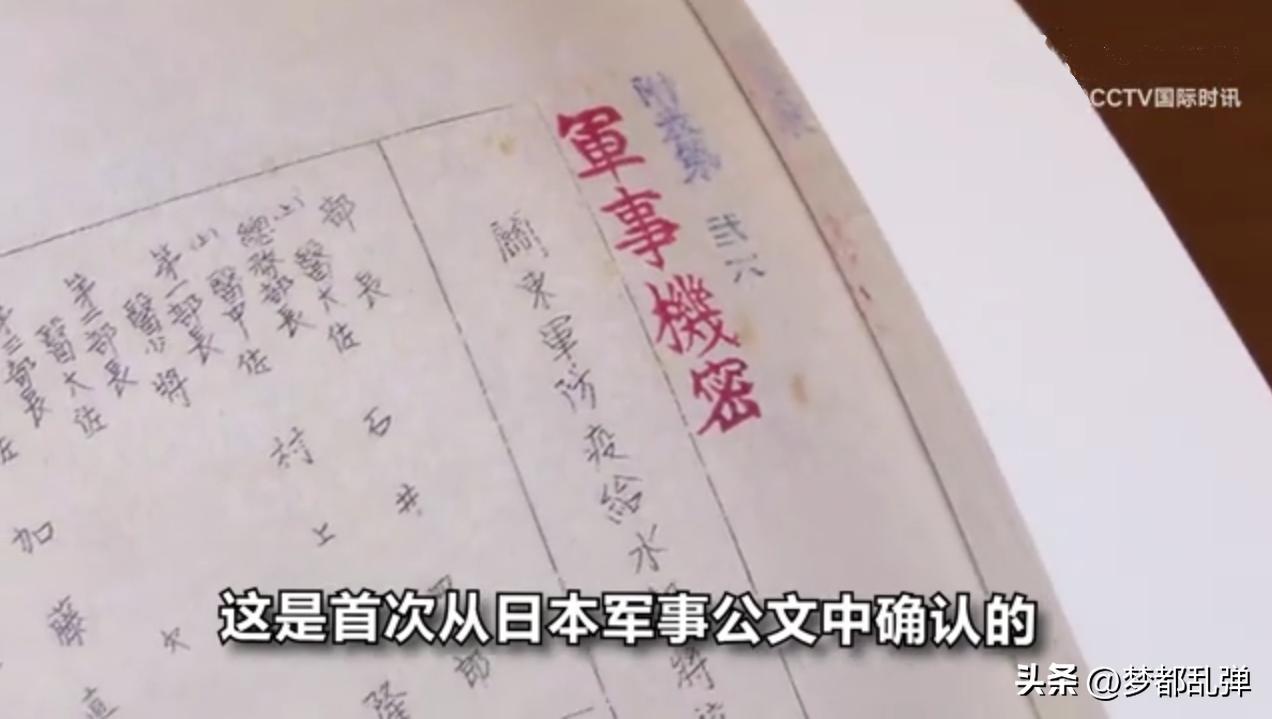 CCTV国际时讯
附表第
弐六
軍事機密
關東軍防疫給水
部長
醫大佐
石井四郎
總務部長
醫中佐
村上隆
第一部長
醫少將
第二部長
醫大佐
第三部長
加藤
将校
这是首次从日本军事公文中确认的
头条 @梦都乱弹